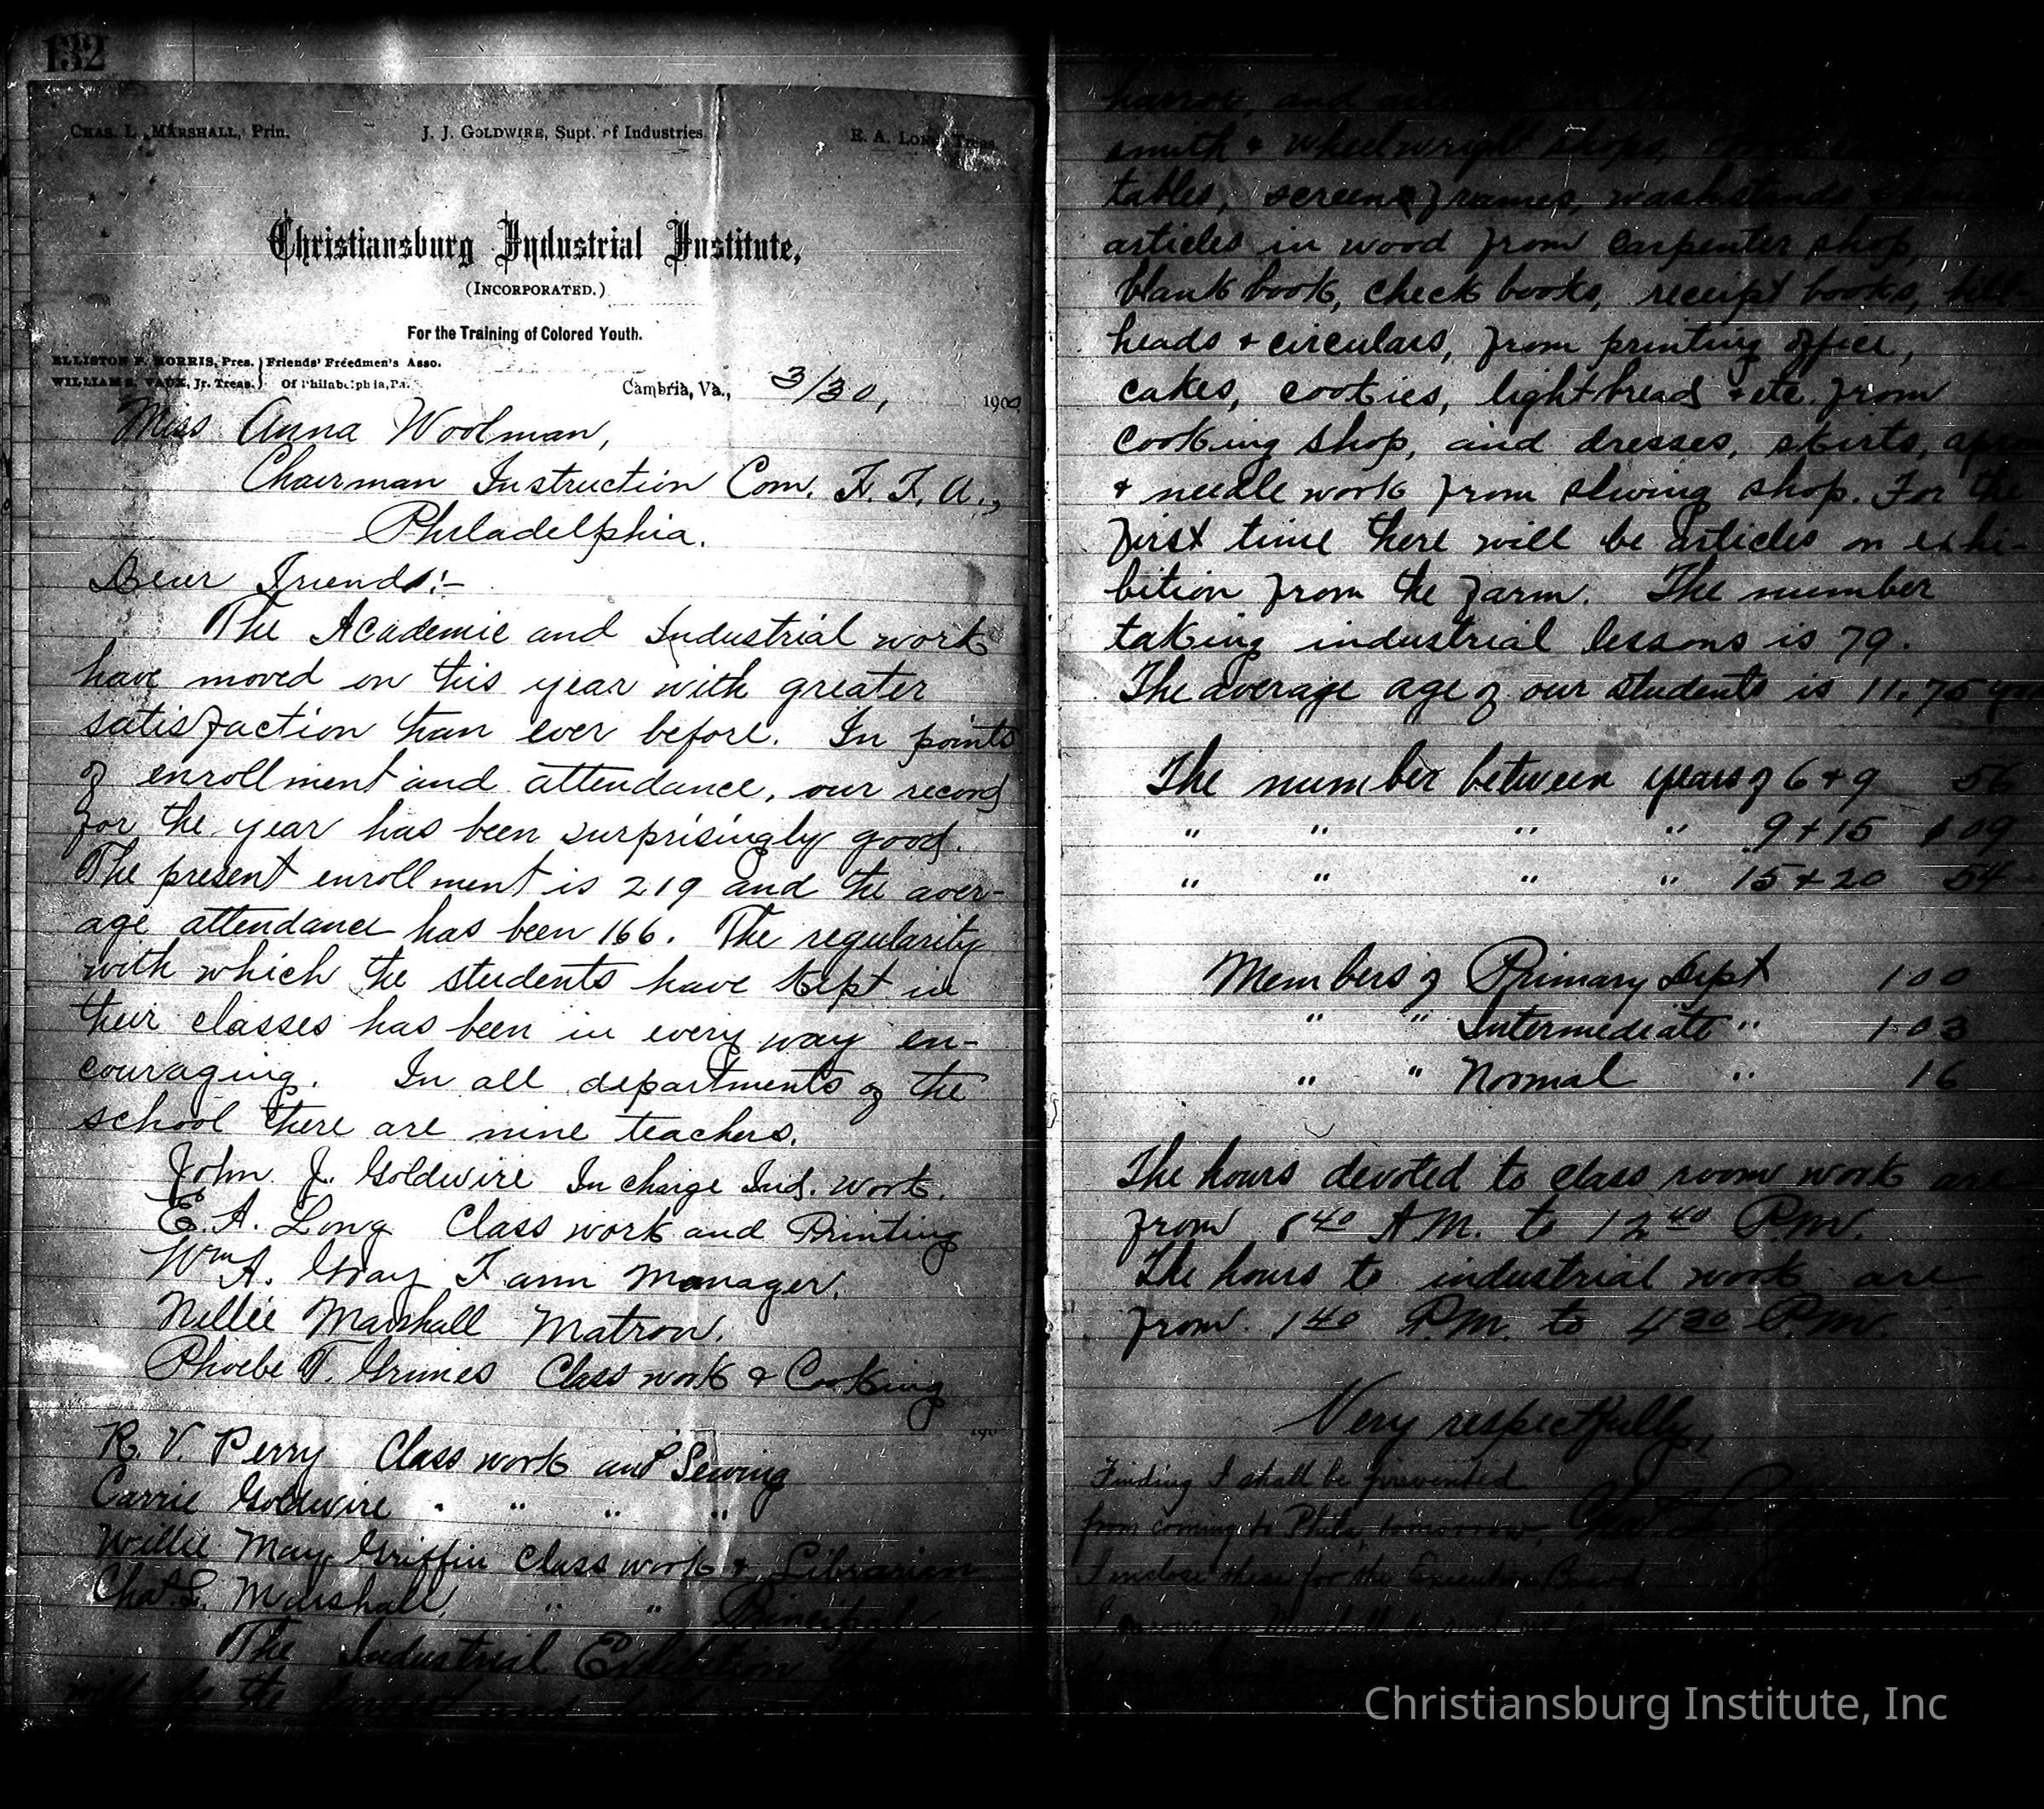 132
CHAS. L. MARSHALL, Prin. J. J. GOLDWIRE, Supt. of Industries. E. A. LONG, Treas.
Christiansburg Industrial Institute,
(INCORPORATED.)
For the Training of Colored Youth.
ELLISTON P. MORRIS, Pres. } Friends' Freedmen's Asso.
WILLIAM S. VAUX, Jr. Treas. } Of Philadelphia, Pa.
Cambria, Va., 3/30, 1900
Miss Anna Woolman,
Chairman Instruction Com. F. F. A.,
Philadelphia.
Dear Friends:-
The Academic and Industrial work
have moved on this year with greater
satisfaction than ever before. In points
of enrollment and attendance, our record
for the year has been surprisingly good.
The present enrollment is 219 and the aver-
age attendance has been 166. The regularity
with which the students have kept in
their classes has been in every way en-
couraging. In all departments of the
school there are nine teachers.
John J. Goldwire In charge Ind. work.
E. A. Long Class work and Printing
Wm A. Gray Farm Manager.
Nellie Marshall Matron.
Phoebe T. Grimes Class work & Cooking
190
R. V. Perry Class work and Sewing
Carrie Goldwire " " " "
Willie May Griffin Class work & Librarian
Chas. L. Marshall, " " Principal.
The Industrial Exhibition
will be the largest
harrow, and
smith & wheelwright shops,
tables, screen frames, washstands &
articles in wood from carpenter shop,
blank book, check books, receipt books, bill
heads & circulars, from printing office,
cakes, cookies, lightbread & etc. from
cooking shop, and dresses, skirts,
& needle work from sewing shop. For the
first time there will be articles on exhi-
bition from the farm. The number
taking industrial lessons is 79.
The average age of our students is 11.75
The number between years of 6 & 9 56
" " " " 9 & 15 109
" " " " 15 & 20 54
Members of Primary Dept 100
" " Intermediate " 103
" " Normal " 16
The hours devoted to class room work are
from 8 40 A.M. to 12 40 P.M.
The hours to industrial work are
from 1 40 P.M. to 4 30 P.M.
Very respectfully,
Finding I shall be prevented
from coming to Phila. tomorrow. Chas. L.
I enclose these for the Executive Board
Christiansburg Institute, Inc